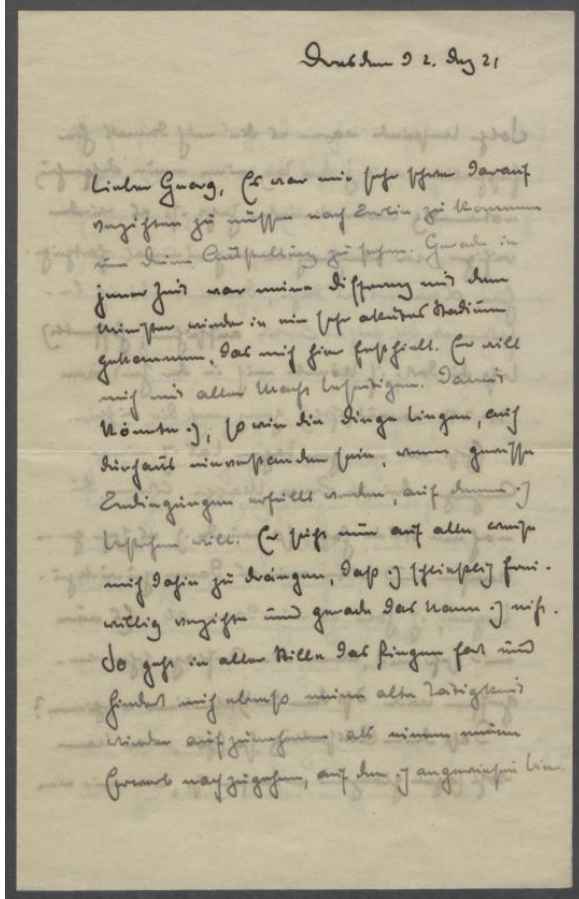 Dresden 2. Dez 21
Lieber Georg, Es war mir sehr schwer darauf
verzichten zu müssen nach Berlin zu kommen
um Deine Ausstellung zu sehen. Gerade in
jener Zeit war meine Differenz mit dem
Minister wieder in ein sehr akutes Stadium
gekommen, das mich hier festhielt. Er will
mich mit aller Macht beseitigen. Damit
könnte ich, so wie die Dinge liegen, auch
durchaus einverstanden sein, wenn gewisse
Bedingungen erfüllt werden, auf denen ich
bestehen will. Er sucht nun auf alle Weise
mich dahin zu drängen, daß ich schließlich frei-
willig verzichte und gerade das kann ich nicht.
So geht in aller Stille das Ringen fort und
hindert mich ebenso meine alte Tätigkeit
wieder aufzunehmen als einem neuen
Erwerb nachzugehen, auf den ich angewiesen bin.